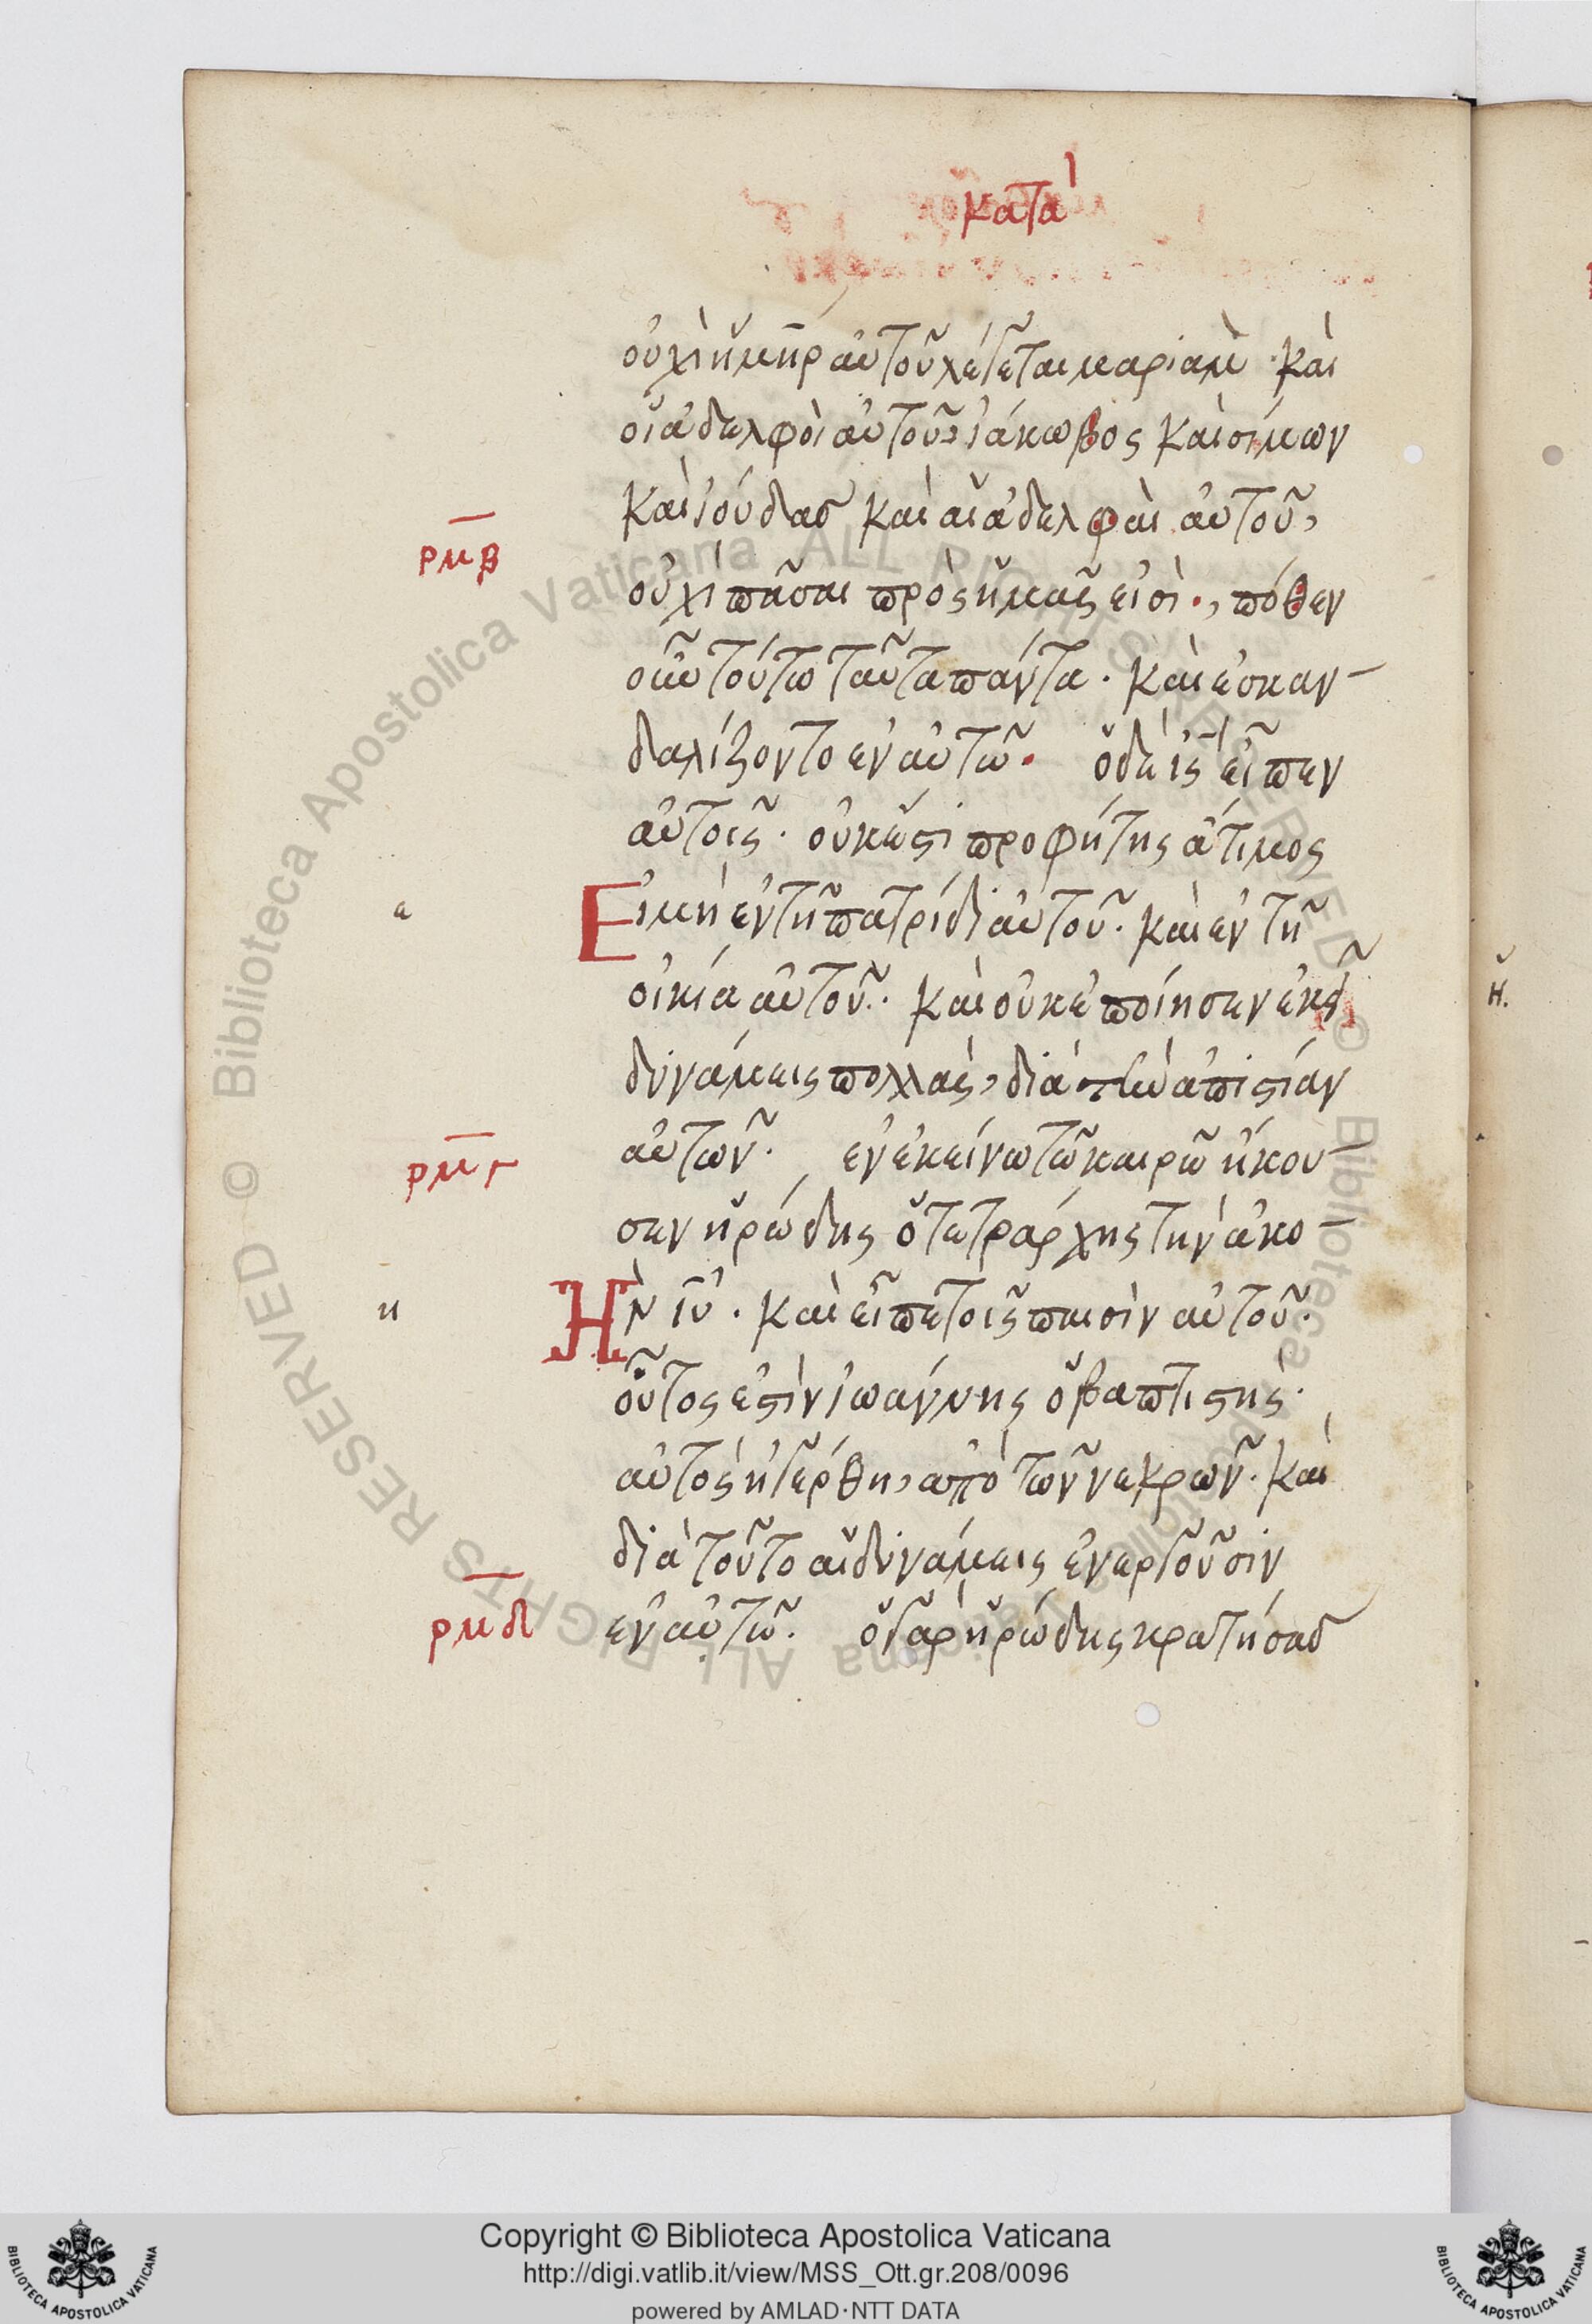 κατὰ
οὐχὶ ἡ μη̅ρ αὐτοῦ λέγεται μαριὰμ · καὶ
οἱ ἀδελφοὶ αὐτοῦ, ἰάκωβος καὶ σίμων
καὶ ἰούδας καὶ αἱ ἀδελφαὶ αὐτοῦ,
ρμβ
οὐχὶ πᾶσαι πρὸς ἡμᾶς εἰσὶ ·, πόθεν
οὖν τούτω ταῦτα πάντα · καὶ ἐσκαν-
δαλίζοντο ἐν αὐτῶ · ὁ δὲ ις̅ εἶπεν
αὐτοῖς · οὐκ ἔστι προφήτης ἄτιμος
ε
Εἰ μὴ ἐν τῆ πατρίδι αὐτοῦ · καὶ ἐν τῆ
οἰκία αὐτοῦ · καὶ οὐκ ἐποίησεν ἐκεῖ
δυνάμεις πολλὰς, διὰ τὴν ἀπιστίαν
ρμγ
αὐτῶν · ἐν ἐκείνω τῶ καιρῶ ἤκου-
σεν ἡρώδης ὁ τετράρχης τὴν ἀκο-
η
Ἠν ιυ̅ · καὶ εἶπε τοῖς παισὶν αὐτοῦ ·
οὗτος ἐστὶν ἰωάννης ὁ βαπτιστὴς ·
αὐτὸς ἠγέρθη, ἀπὸ τῶν νεκρῶν · καὶ
διὰ τοῦτο αἱ δυνάμεις ἐνεργοῦσιν
ρμδ
ἐν αὐτῶ · ὁ γὰρ ἡρώδης κρατήσας
ἢ.
Copyright © Biblioteca Apostolica Vaticana
http://digi.vatlib.it/view/MSS_Ott.gr.208/0096
powered by AMLAD·NTT DATA
BIBLIOTECA APOSTOLICA VATICANA
BIBLIOTECA APOSTOLICA VATICANA
© Biblioteca Apostolica Vaticana ALL RIGHTS RESERVED
© Biblioteca Apostolica Vaticana ALL RIGHTS RESERVED